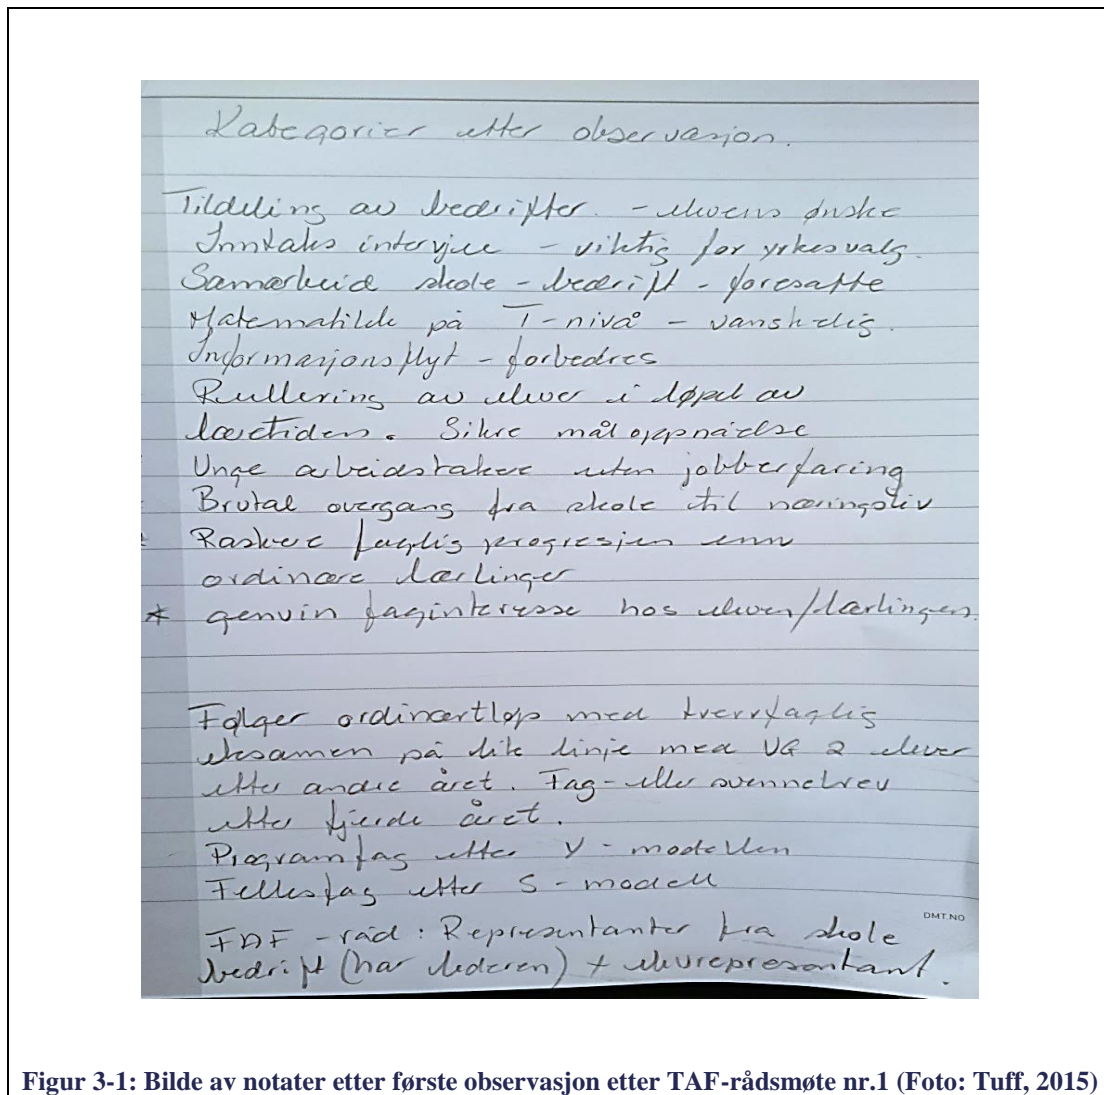 Kategorier etter observasjon.
Tildeling av bedrifter. - elevens ønske
Inntaks intervjue - viktig for yrkesvalg.
Samarbeid skole - bedrift - foresatte
Matematikk på T-nivå - vanskelig.
Informasjonsflyt - forbedres
Rullering av elever i løpet av
læretiden. Sikre måloppnåelse
Unge arbeidstakere uten jobberfaring
Brutal overgang fra skole til næringsliv
Raskere faglig progresjon enn
ordinære lærlinger
* genuin faginteresse hos eleven/lærlingen.
Følger ordinærtløp med tverrfaglig
eksamen på lik linje med VG 2 elever
etter andre året. Fag- eller svennebrev
etter fjerde året.
Programfag etter Y - modellen
Fellesfag etter S - modell
DMT.NO
TAF - råd : Representanter fra skole
bedrift (har lederen) + elevrepresentant.
Figur 3-1: Bilde av notater etter første observasjon etter TAF-rådsmøte nr.1 (Foto: Tuff, 2015)